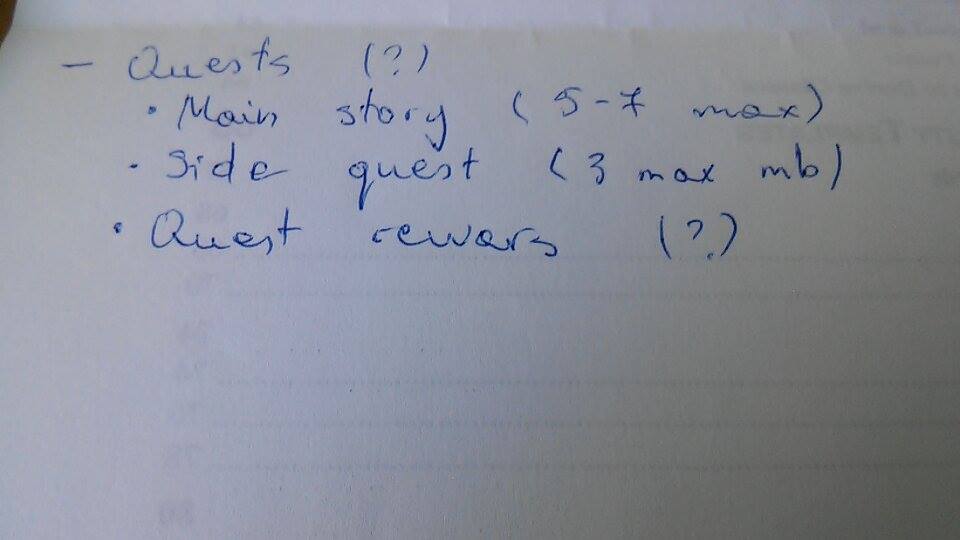 - Quests (?)
• Main story (5-7 max)
• Side quest (3 max mb)
• Quest rewars (?)